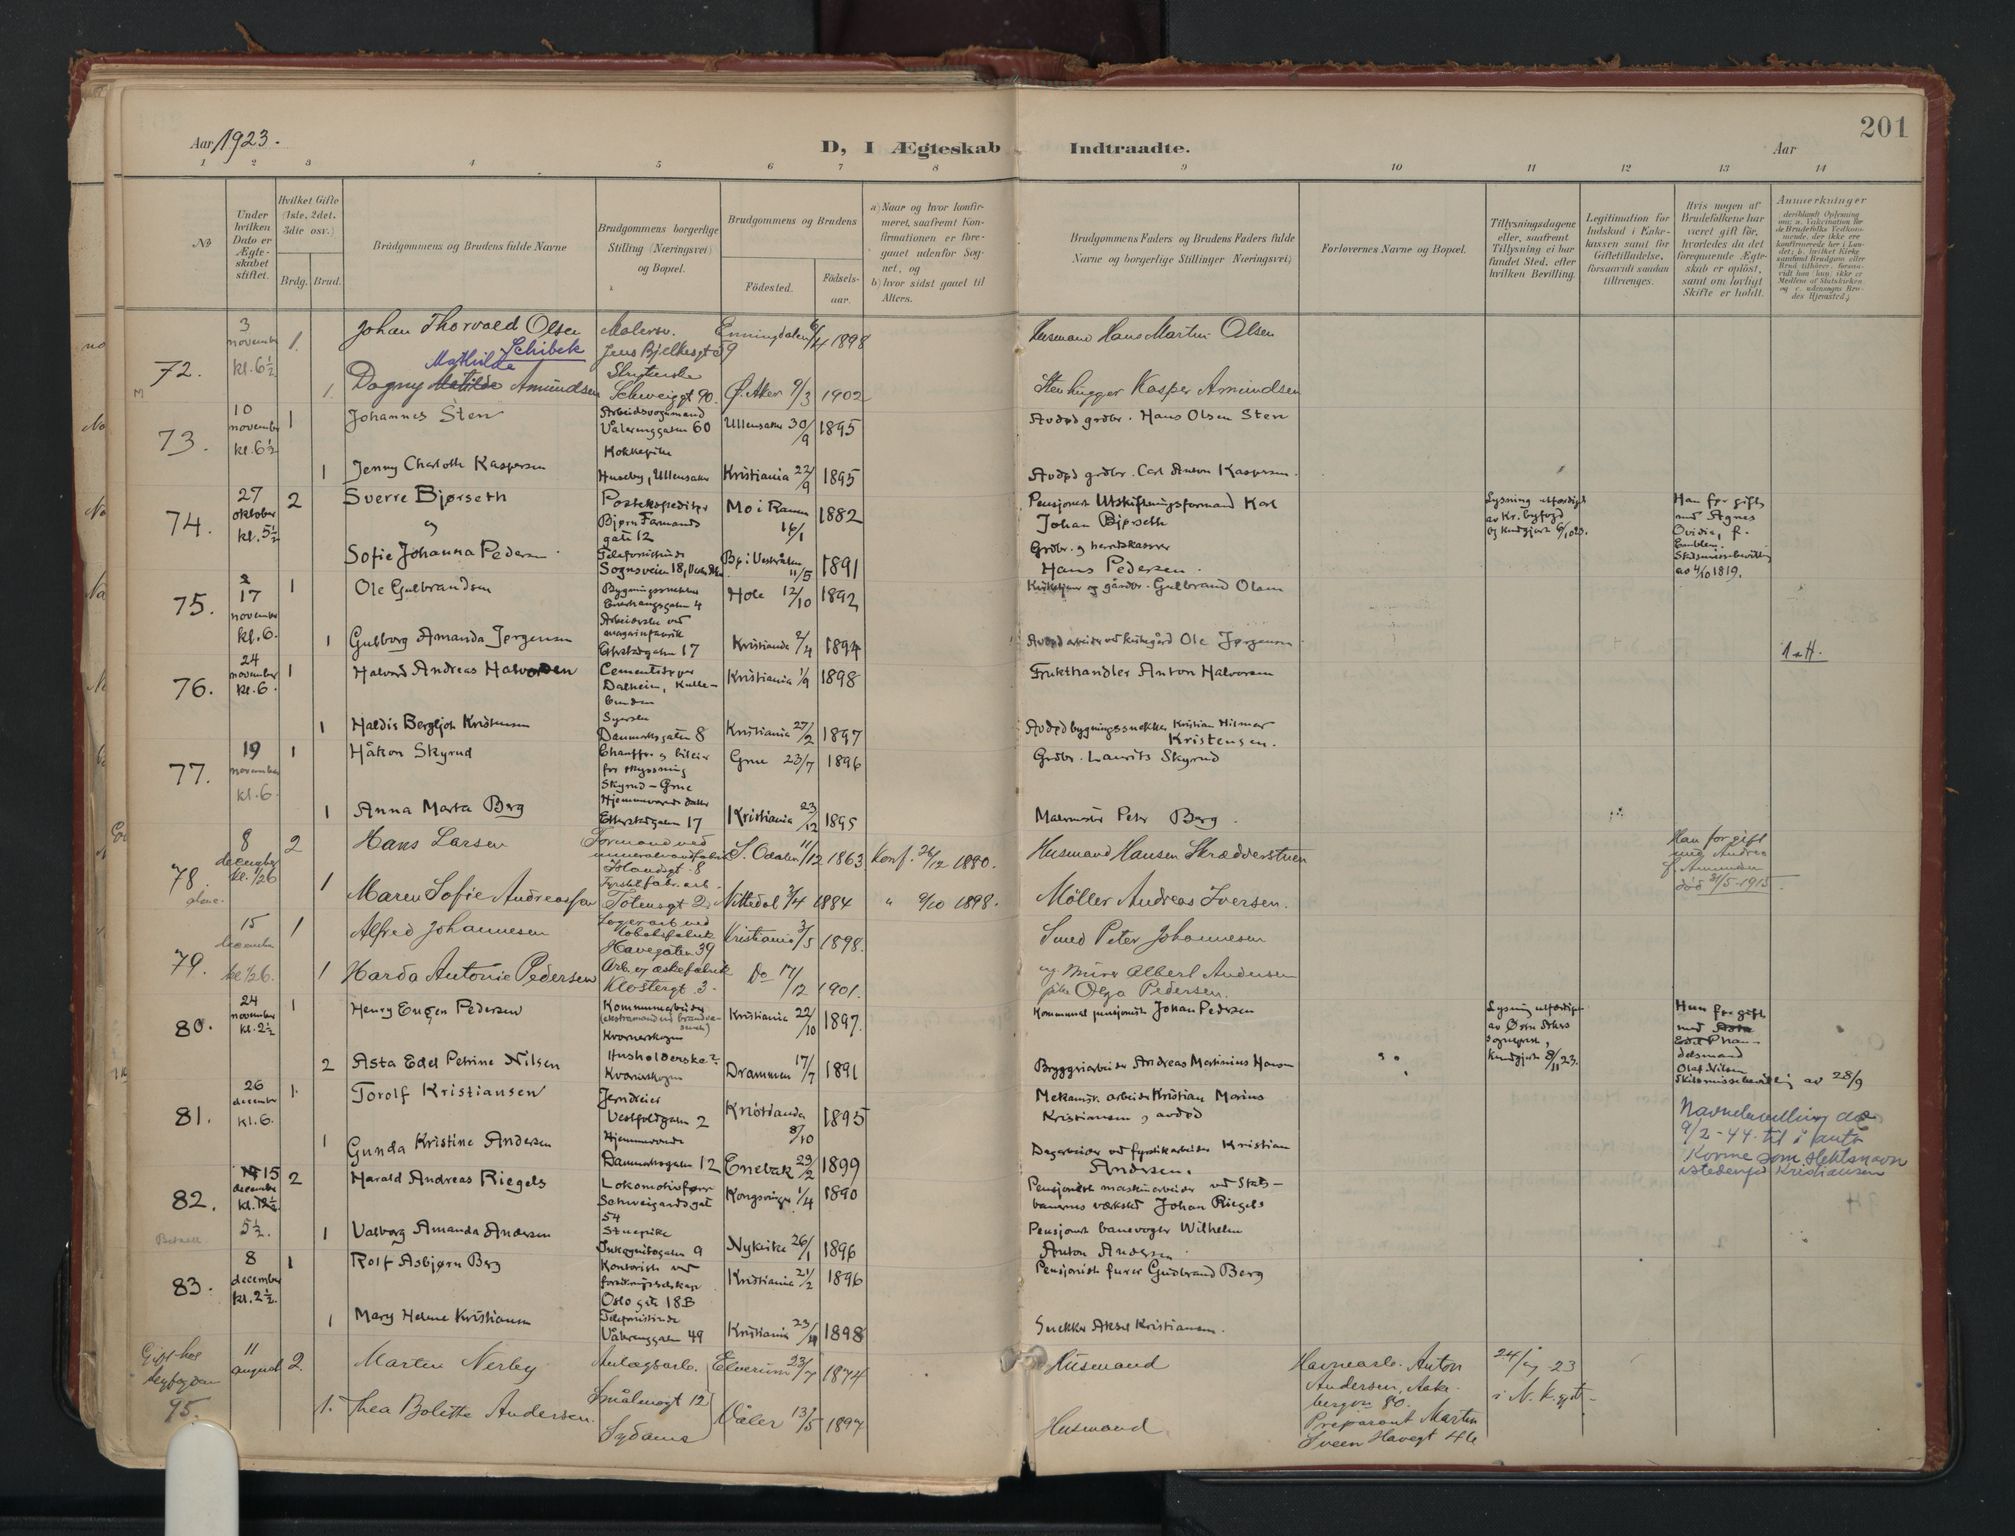 201
Aar 1923.
D, I Ægteskab Indtraadte.
Aar
1 2 3 4 5 6 7 8 9 10 11 12 13 14
No
Under hvilken Dato er Ægteskabet stiftet.
Hvilket Gifte (1ste, 2det, 3die osv.)
Brdg. Brud.
Brudgommens og Brudens fulde Navne
Brudgommens borgerlige Stilling (Næringsvei) og Bopæl.
Brudgommens og Brudens
Fødested.
Fødselsaar.
a) Naar og hvor konfirmeret, saafremt Konfirmationen er foregaaet udenfor Sognet, og
b) hvor sidst gaaet til Alters.
Brudgommens Faders og Brudens Faders fulde Navne og borgerlige Stillinger (Næringsvei)
Forlovernes Navne og Bopæl.
Tillysningsdagene eller, saafremt Tillysning ei har fundet Sted, efter hvilken Bevilling.
Legitimation for Indskud i Enkekassen samt for Giftetilladelse, forsaavidt saadan tiltrænges.
Hvis nogen af Brudefolkene har været gift før, hvorledes da det foregaaende Ægteskab er opløst, samt om lovligt Skifte er holdt.
Anmerkninger
72. 3 november kl. 6½ 1. Johan Thorvald Olsen Malersv. Jens Bjelkesgt 59 Enningdalen 6/4 1898 Husmand Hans Martin Olsen
Schibek
Mathilde
1. Dagny Matilde Amundsen Schweiggt 90. Ø. Aker 9/3 1902 Stenhugger Kasper Amundsen
73. 10 november kl. 6½ 1 Johannes Sten Arbeidsvognmand Vålerenggaten 60 Ullensaker 30/9 1895 Avdød grdbr. Hans Olsen Sten
1 Jenny Charlotte Kaspersen Kokkepike Huseby, Ullensaker Kristiania 22/9 1895 Avdød grdbr. Carl Anton Kaspersen.
74. 27 oktober kl. 5½ 2 Sverre Bjørseth Postekspeditør Bjørn Farmands gate 12 Mo i Ranen 16/1 1882 Pensjonert Utskiftningsformand Karl Johan Bjørseth
Lysning utfærdiget av Kr. byfogd og kundgjort 6/10 23.
Han før gift med Agnes Ovidia, f. Emblem. Skilsmissebevilling av 4/10 1819.
og
Sofie Johanna Pedersen Telefonistinde Sognsveien 18, Bø i Vesterålen 11/5 1891 Grdbr. og herredskasserer Hans Pedersen.
75. 17 november kl. 6. 1 Ole Gulbrandsen Bygningssnekker Hole 12/10 1892 Kirketjener og gårdbr. Gulbrand Olsen
1 Gulborg Amanda Jørgensen Arbeiderske ved margarinfabrik Etterstadgaten 17 Kristiania 2/4 1894 Avdød arbeider ved kirkegård Ole Jørgensen
76. 24 november kl. 6. 1 Halvard Andreas Halvorsen Cementstøper Dalheim, Kristiania 1/9 1898 Frukthandler Anton Halvorsen
1 Haldis Bergljot Kristensen Syerske Danmarksgaten 8 Kristiania 27/2 1897 Avdød bygningssnekker Kristian Hilmar Kristensen.
77. 19 november kl. 6. 1 Håkon Skyrud Chauffør og bileier for skyssning Skyrud – Grue Grue 23/7 1896 Grdbr. Laurits Skyrud
1 Anna Marta Berg Hjemmeværende datter Etterstadgaten 17 Kristiania 23/12 1895 Malermester Peter Berg.
78. 8 december kl. ½6 2 Hans Larsen Formand ved mineralvandfabrik Islandsgt 8 S. Odalen 11/12 1863 Konf. 26/12 1880. Husmand Hansen Skrædderstuen
Han før gift med Andrea f. Amundsen død 31/5-1915
alene.
1 Maren Sofie Andreassen Fyrstikfabr.arb. Totensgt 2. Nittedal 3/4 1884 " 9/10 1898. Møller Andreas Iversen.
79. 15 december kl ½6. 1 Alfred Johannesen Lagerarb ved Havegaten 39 Kristiania 3/5 1898. Smed Peter Johannesen
1 Harda Antonie Pedersen Arb. v/ æskefabrik Klostergt 3. Do 17/12 1901. Murer Albert Andersen Olga Pedersen.
80. 24 november kl. 2½ 1 Henry Eugen Pedersen Kommunearbeider (ekstramand ved brandvæsenet) Kværnerskogen Kristiania 22/10 1897. Kommunal pensjonist Johan Pedersen
Lysning utfærdiget av Østre Akers sogneprest, kundgjort 8/11 23.
Hun før gift med Asta Edel Phandelsmand Olaf Nilsen Skilsmissebevilling av 28/9
2 Asta Edel Petrine Nilsen Husholderske Kværnerskogen Drammen 17/7 1891 Bryggeriarbeider Andreas Martinius Hansen
81. 26 december kl. 6. 1. Torolf Kristiansen Jerndreier Vestfoldgaten 2 Kristiania 8/10 1895 Mekanisk arbeider Kristian Marius Kristiansen, avdød
Navnebevilling av 9/2-44 til å anta Korme som slektsnavn istedenfor Kristiansen
1 Gunda Kristine Andersen Hjemmeværende Danmarksgaten 12 Enebak 29/2 1899 Dagarbeider ved fyrstikarbeider Kristian Andersen.
82. 15 december kl. 12½. 5½. 2 Harald Andreas Riegels Lokomotivfører Schweigaardsgate 54 Kongsvinger 1/4 1890 Pensjonert maskinarbeider ved Statsbanernes værksted Johan Riegels
1 Valborg Amanda Andersen Stuepike Inkognitogaten 9 Nykirke 26/1 1896 Pensjonert banevogter Wilhelm Anton Andersen
83. 8 december kl. 2½. 1 Rolf Asbjørn Berg Kontorist ved forsikringsselskap Oslo gate 18B Kristiania 21/2 1896 Pensjonist furer Gudbrand Berg
1 Mary Helene Kristiansen Telefonistinde Vålerenggaten 49 Kristiania 23/10 1898 Snekker Aksel Kristiansen.
Gift hos byfogden 95. 11 august 2. Martin Nerby Anlægsarb. Smålensgt 12 Elverum 23/7 1874 Husmand
Havnearb. Anton Andersen, Akebergvn 80.
24/8 23 i N. k. gjt.
1. Thea Bolette Andersen. Sydame Våler 13/5 1897 Husmand.
Preparant Martin Sveen Havegt 46